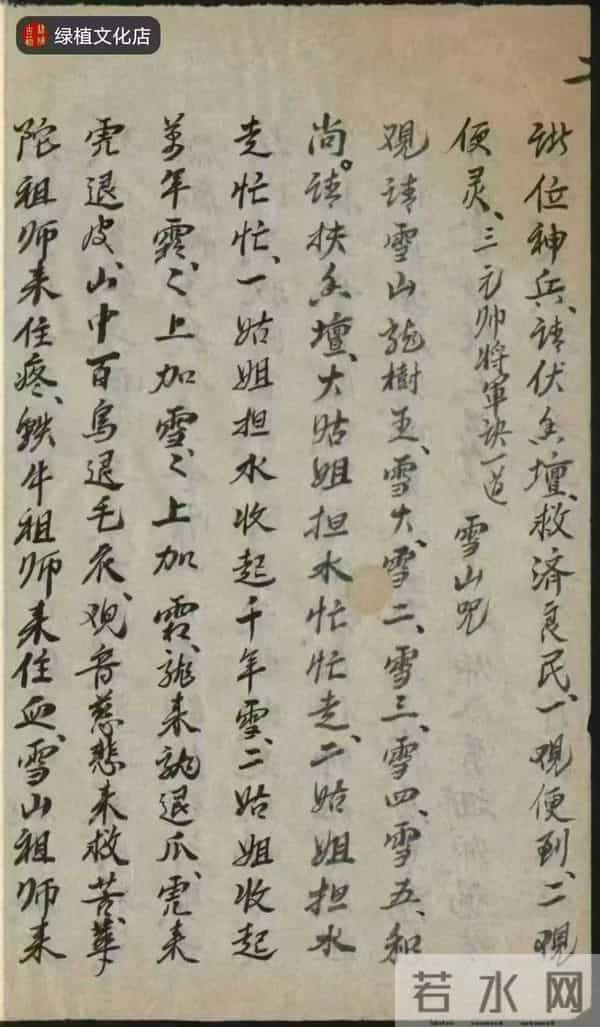 绿植文化店
二
诸位神兵、请伏香坛、救济良民、一观便到、二观
便灵、三元帅将军诀一道 雪山咒
观请雪山龙树王、雪大、雪二、雪三、雪四、雪五、和
尚。请扶香坛、大姑姐担水忙忙走、二姑姐担水
走忙忙、一姑姐担水收起千年雪、二姑姐收起
万年霜、〻上加雪〻上加霜、龙来龙退爪、虎来
虎退皮、山中百鸟退毛衣、观音慈悲来救苦、华
陀祖师来住疼、铁牛祖师来住血、雪山祖师来
若水网